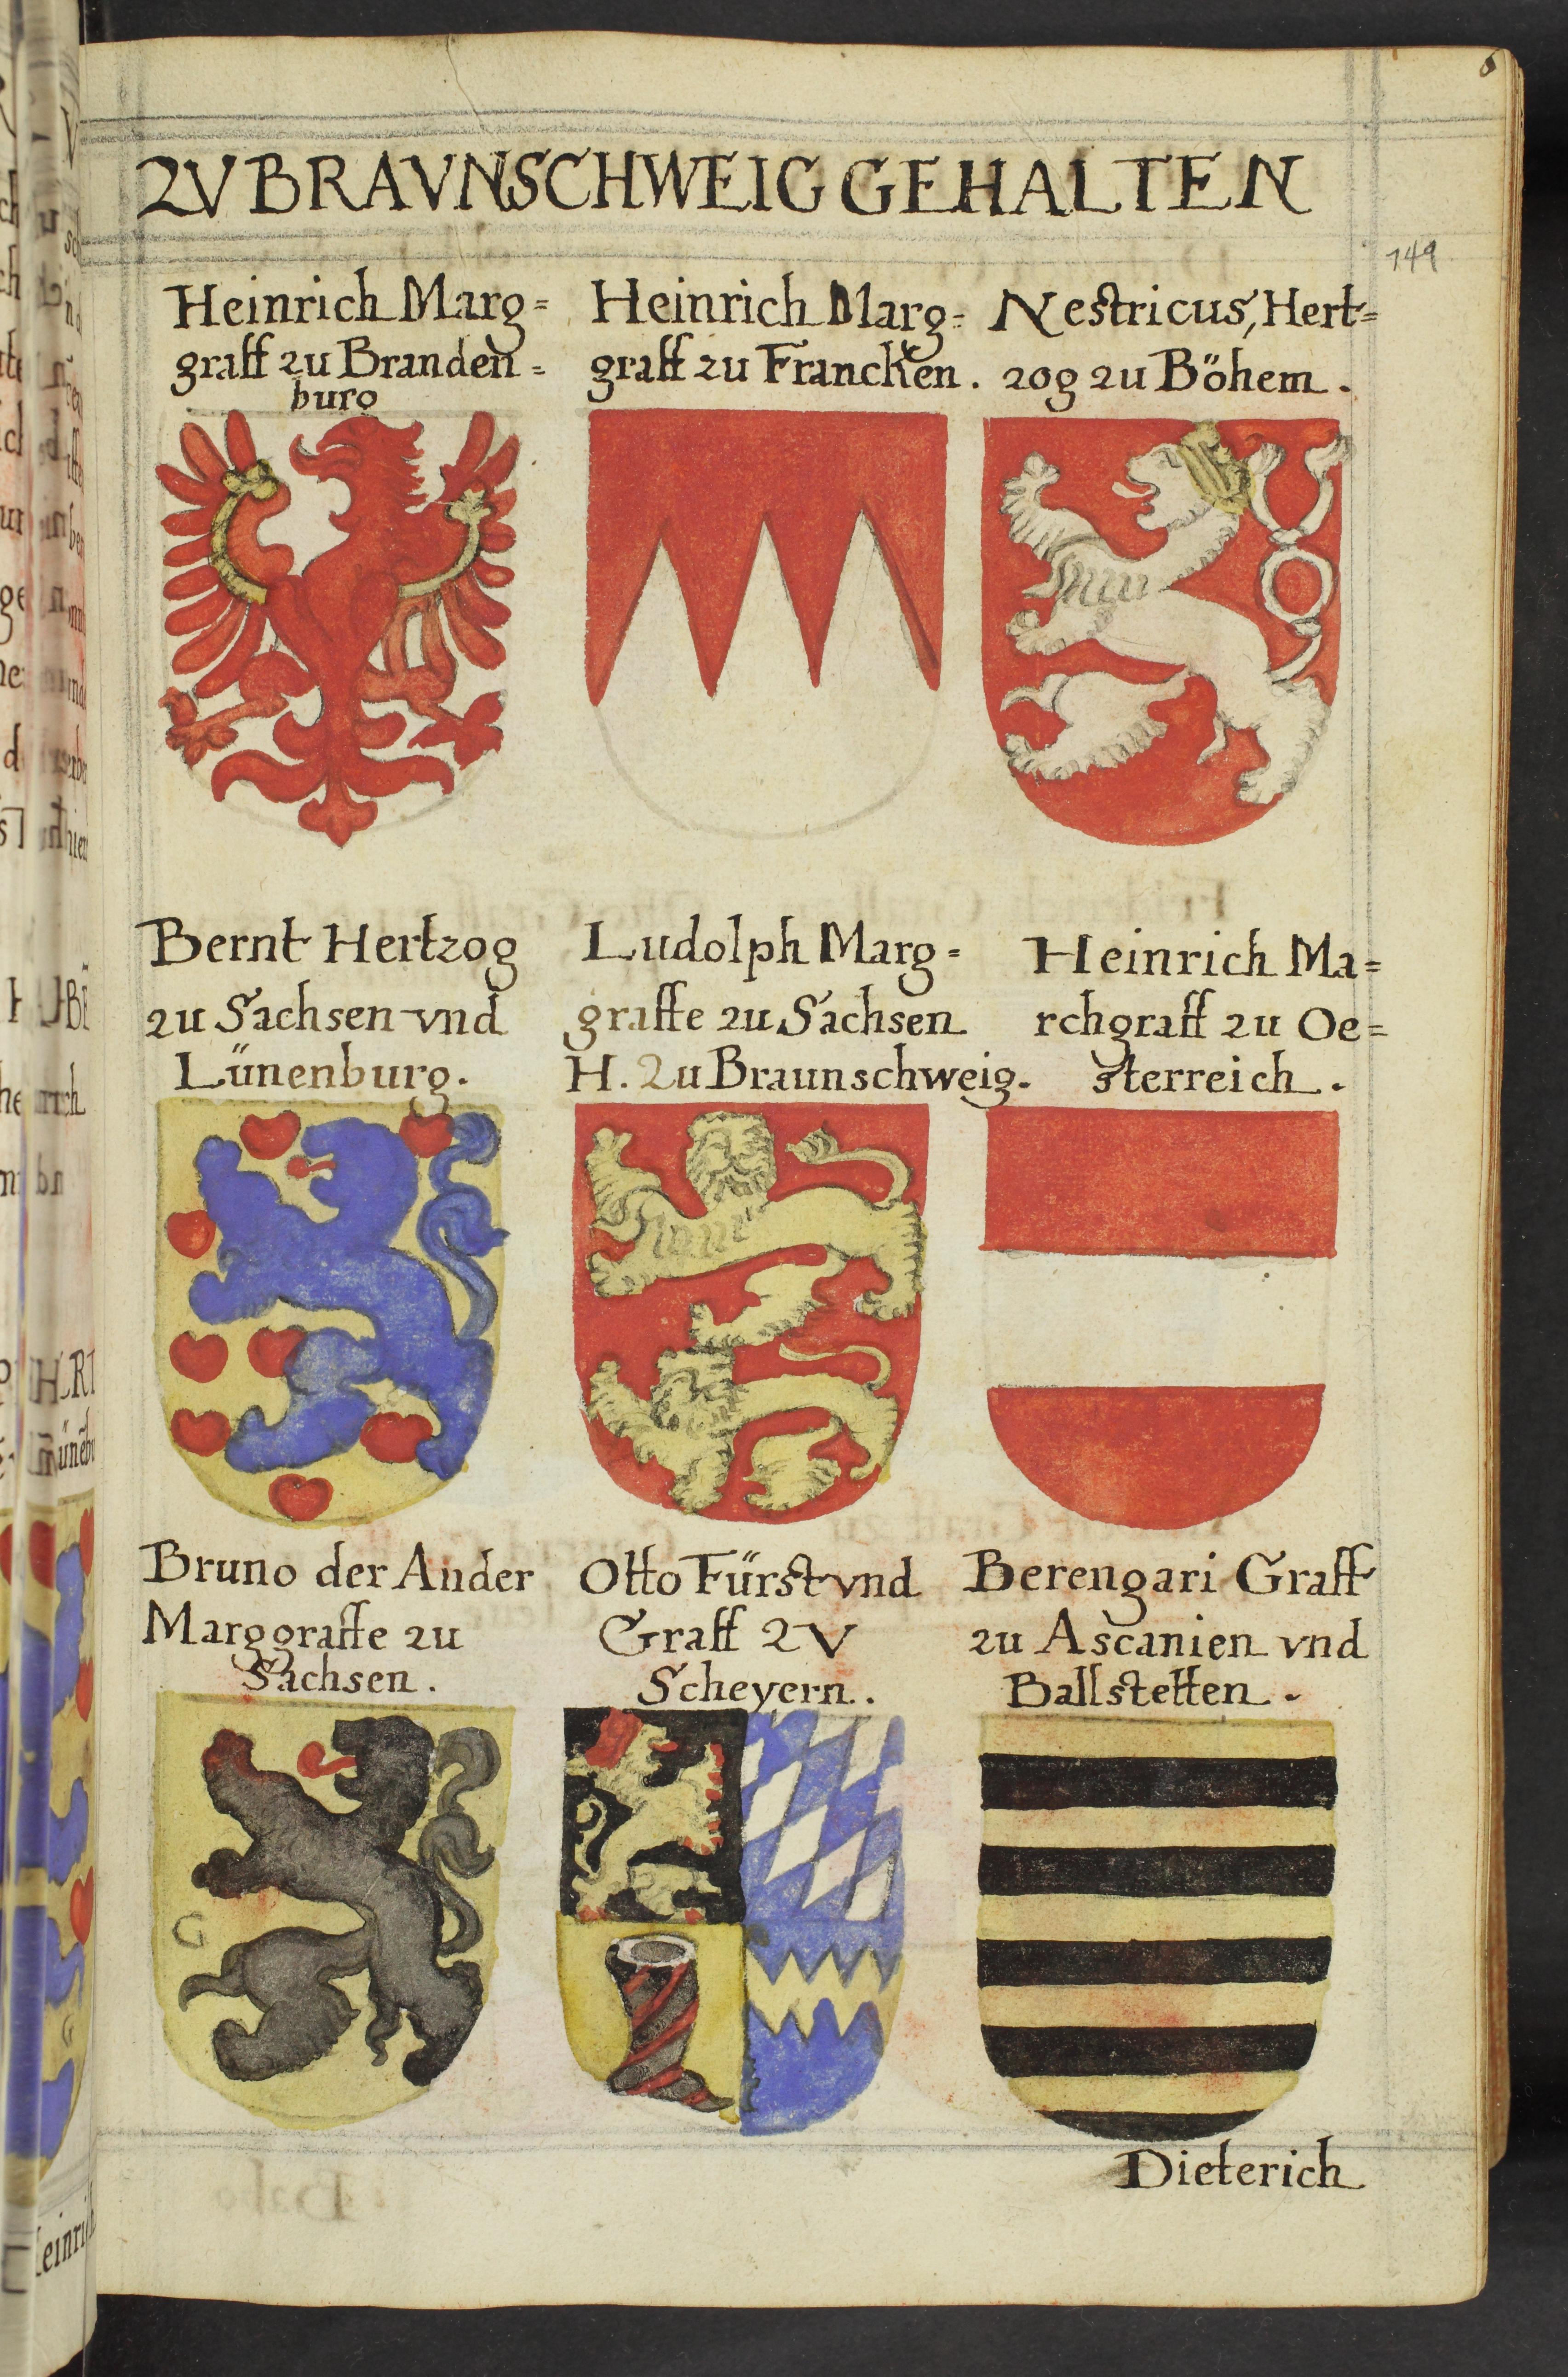 6
ZV BRAVNSCHWEIG GEHALTEN
149
Heinrich Marg=
graff zu Branden=
burg
Heinrich Marg=
graff zu Francken.
Nestricus, Hert=
zog zu Böhem.
Bernt Hertzog
zu Sachsen vnd
Lünenburg.
Ludolph Marg=
graffe zu Sachsen
H. Zu Braunschweig.
Heinrich Ma=
rchgraff zu Oe=
sterreich.
Bruno der Ander
Marggraffe zu
Sachsen.
Otto Fürst vnd
Graff ZV
Scheyern.
Berengari Graff
zu Ascanien vnd
Ballstetten.
G
Dieterich